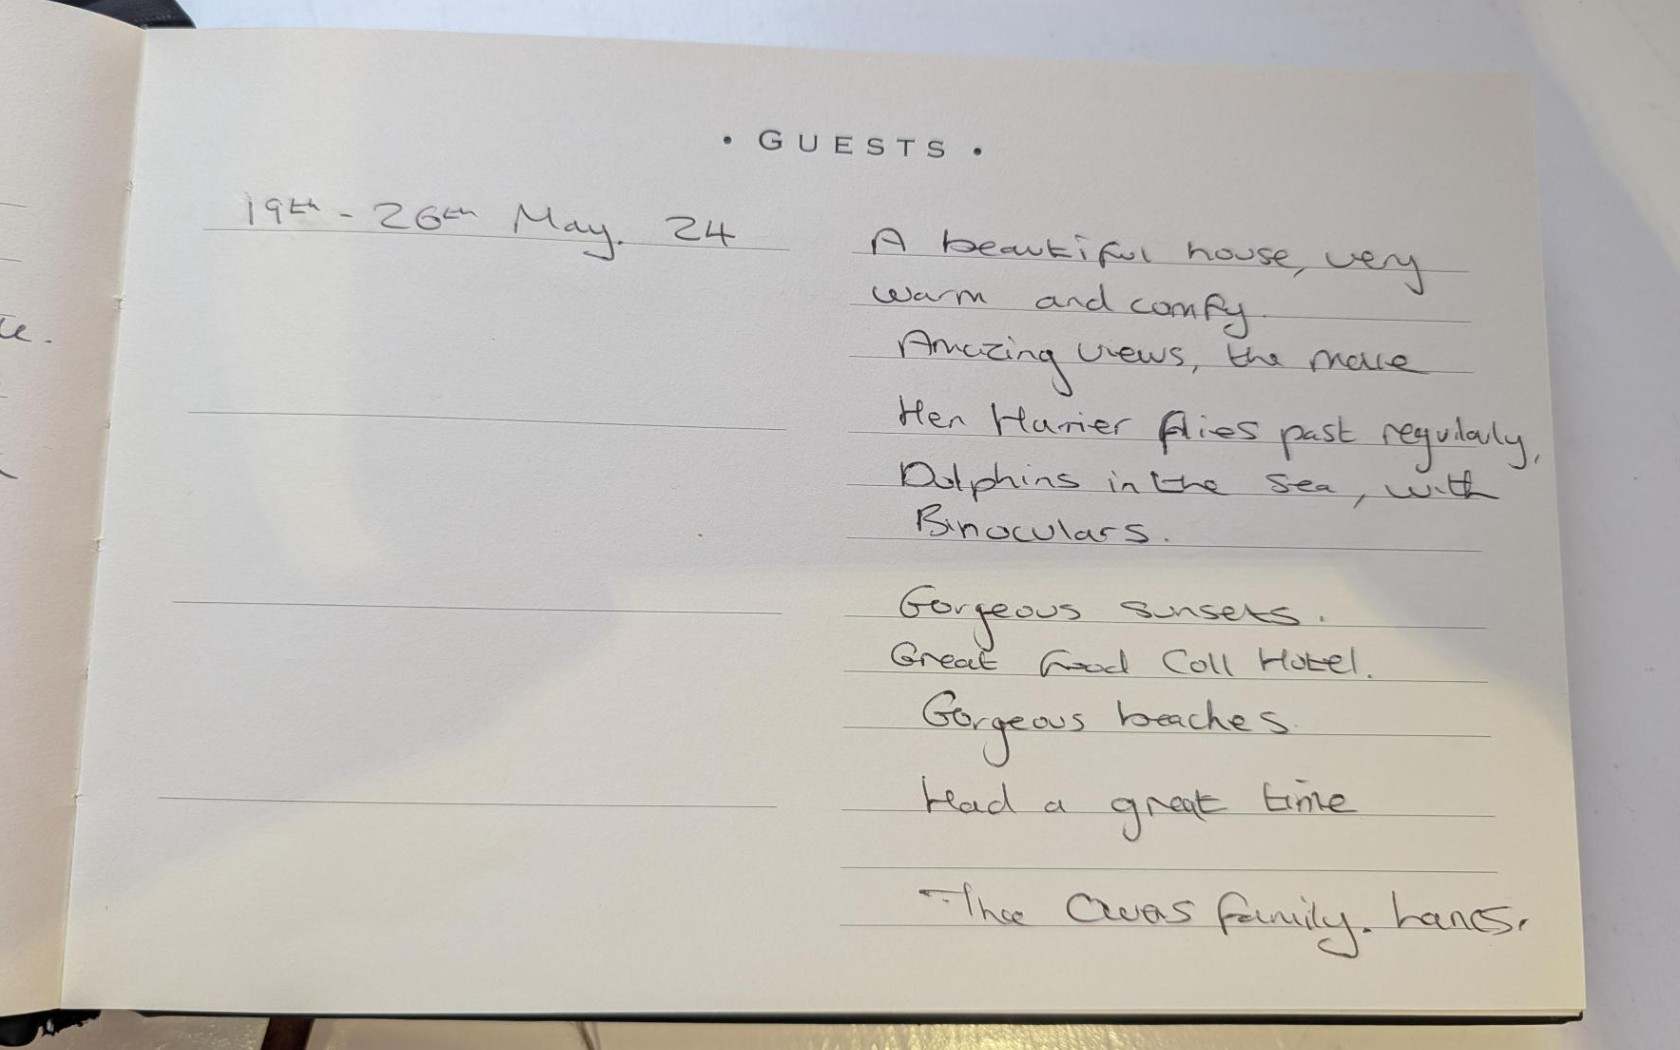 • GUESTS •
19th - 26th May. 24
A beautiful house, very
warm and comfy.
Amazing views, the male
Hen Harrier flies past regularly,
Dolphins in the sea, with
Binoculars.
Gorgeous sunsets.
Great food Coll Hotel.
Gorgeous beaches.
Had a great time
The family. Lancs.